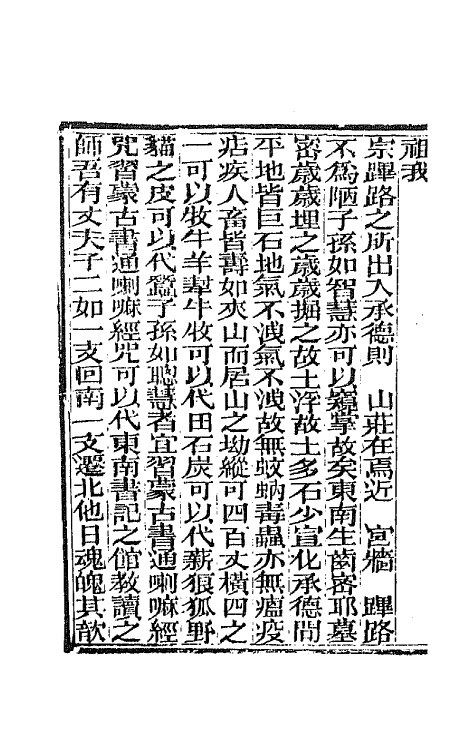 祖我
宗蹕路之所出入承德則　山莊在焉近　宮牆　蹕路
不爲陋子孫如智慧亦可以窺掌故矣東南生齒密耶墓
密歲歲埋之歲歲掘之故土浮故土多石少宣化承德間
平地皆巨石地氣不洩氣不洩故無蚊蚋毒蟲亦無瘟疫
痁疾人畜皆壽如夾山而居山之坳縱可四百丈橫四之
一可以牧牛羊犂牛牧可以代田石炭可以代薪狼狐野
貓之皮可以代蠶子孫如聰慧者宜習蒙古書通喇嘛經
咒習蒙古書通喇嘛經咒可以代東南書記之館教讀之
師吾有丈夫子二如一支回南一支遷北他日魂魄其歆